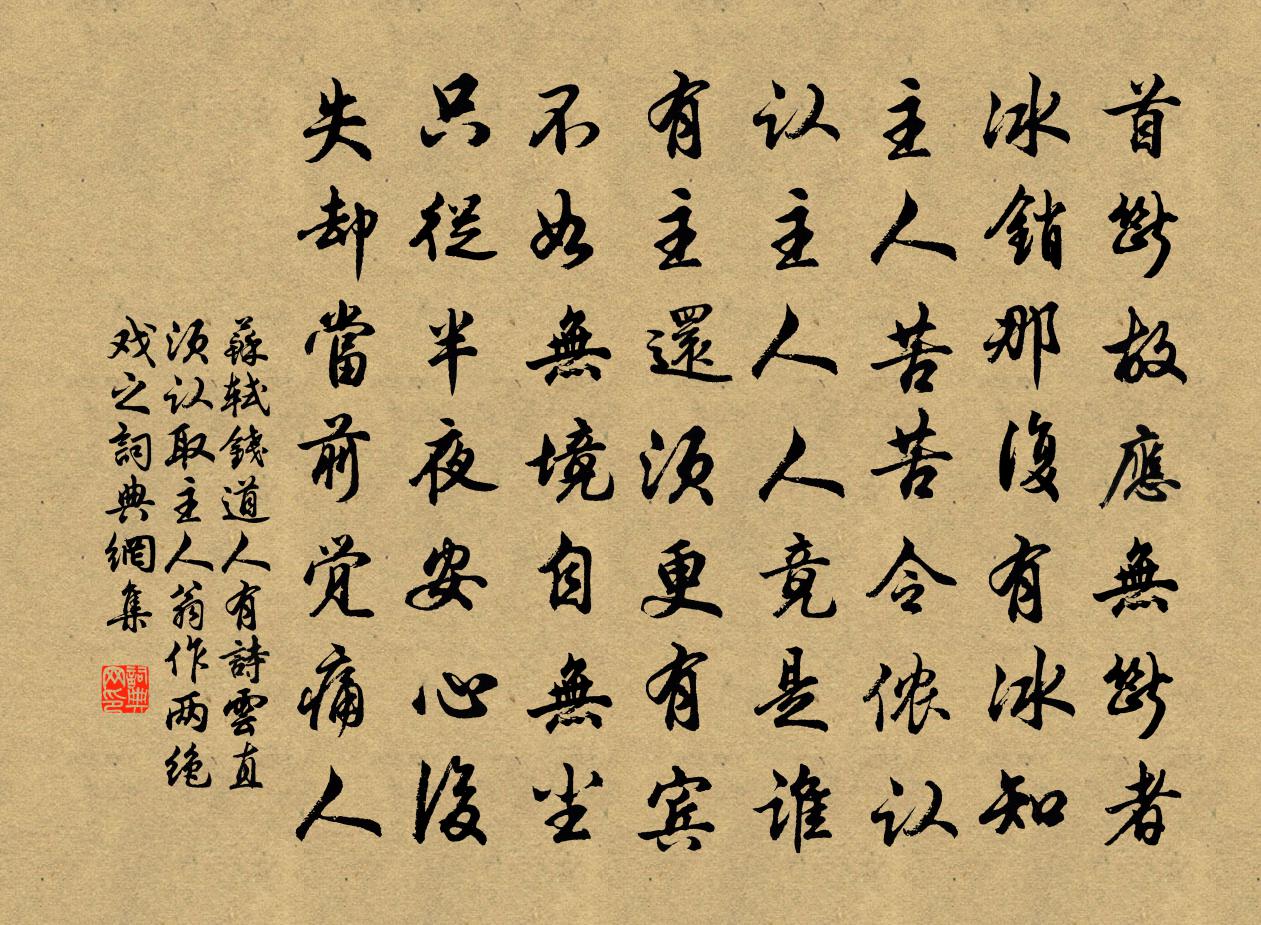 首斷故應無斷者
冰銷那復有冰知
主人苦苦令侬认
认主人人竟是谁
有主還須更有宾
不如無境自無尘
只從半夜安心後
失却當前觉痛人
蘇軾錢道人有詩雲直
須认取主人翁作两绝
戏之詞典網集
詞典
网印